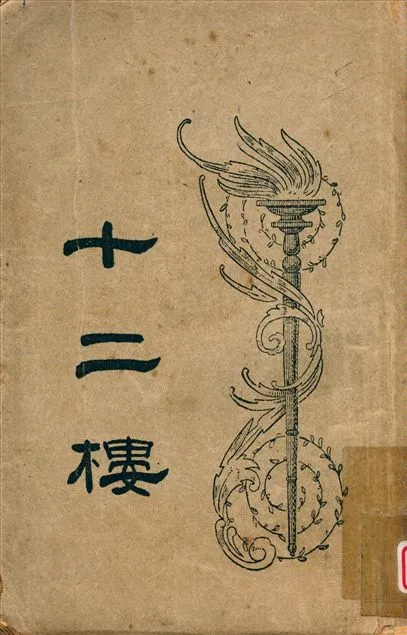 十二樓